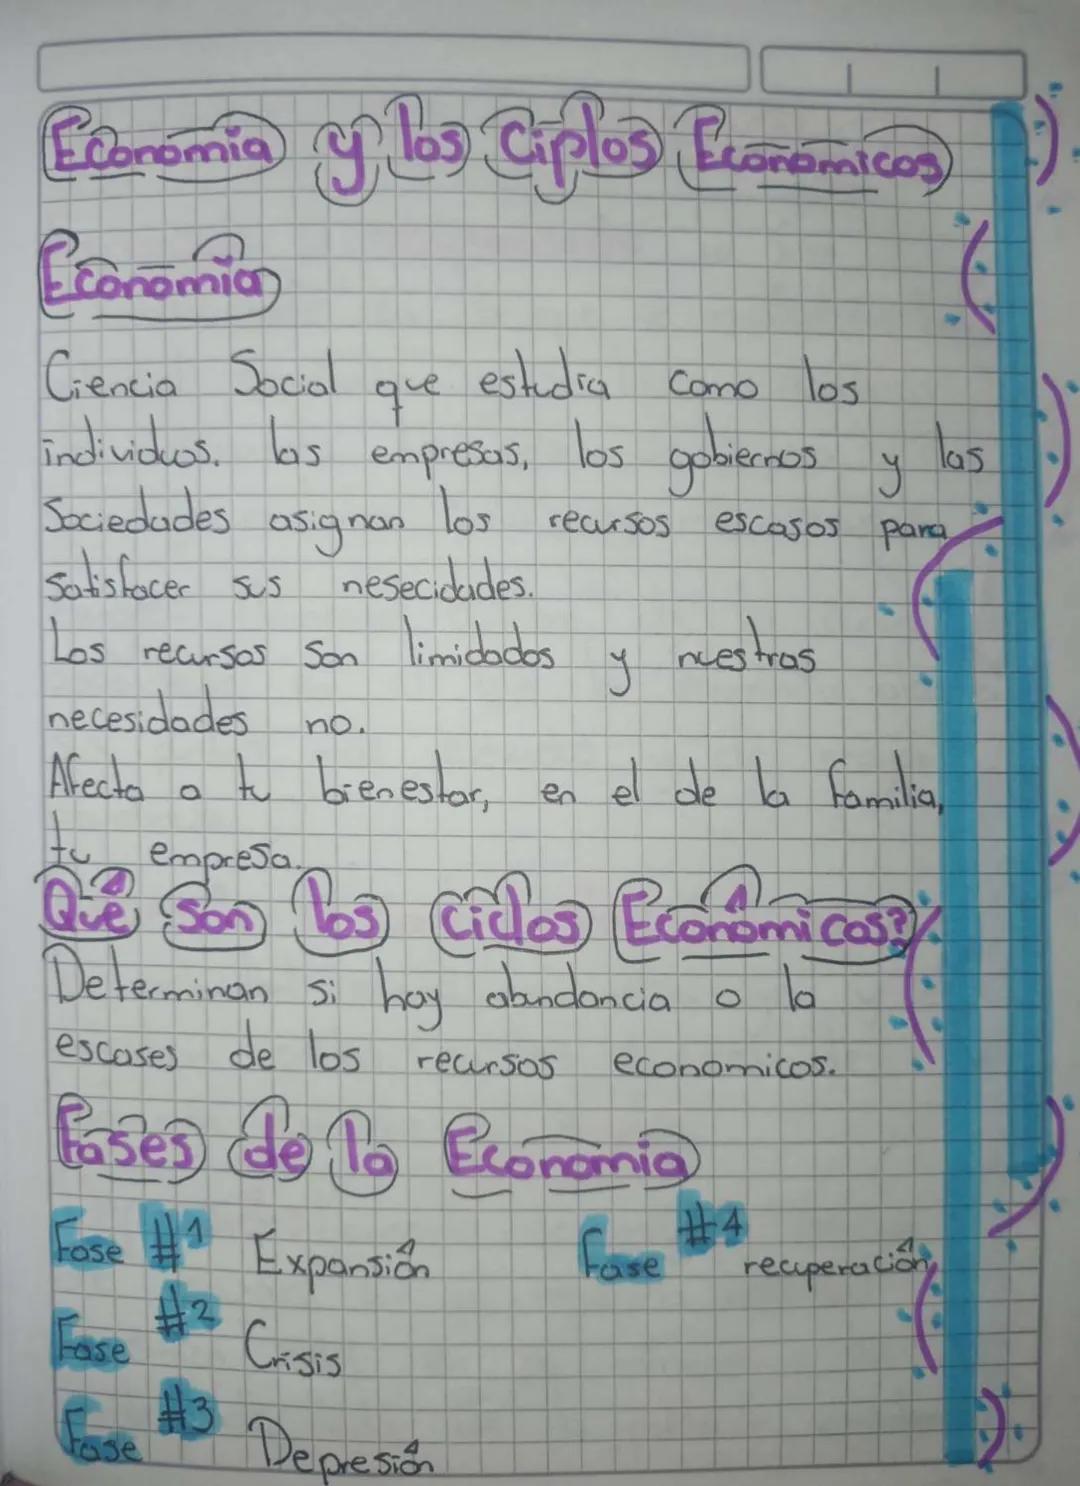 Economia y los Ciplos Economicos
Economia
Ciencia Social que estudia como los
individuos. las empresas, los gobiernos y las
Sociedades asignan los recursos escasos para
Satisfacer sus nesecidades.
Los recursos son limidados y nuestras
necesidades no.
Afecta a tu bienestar, en el de la familia,
tu empresa.
Qué son los ciclos Económicos?
Determinan si hay abundancia o la
escases de los recursos economicos.
Fases de la Economia
Fase #1 Expansión Fase #4 recuperación
Fase #2 Crisis
Fase #3 Depresión